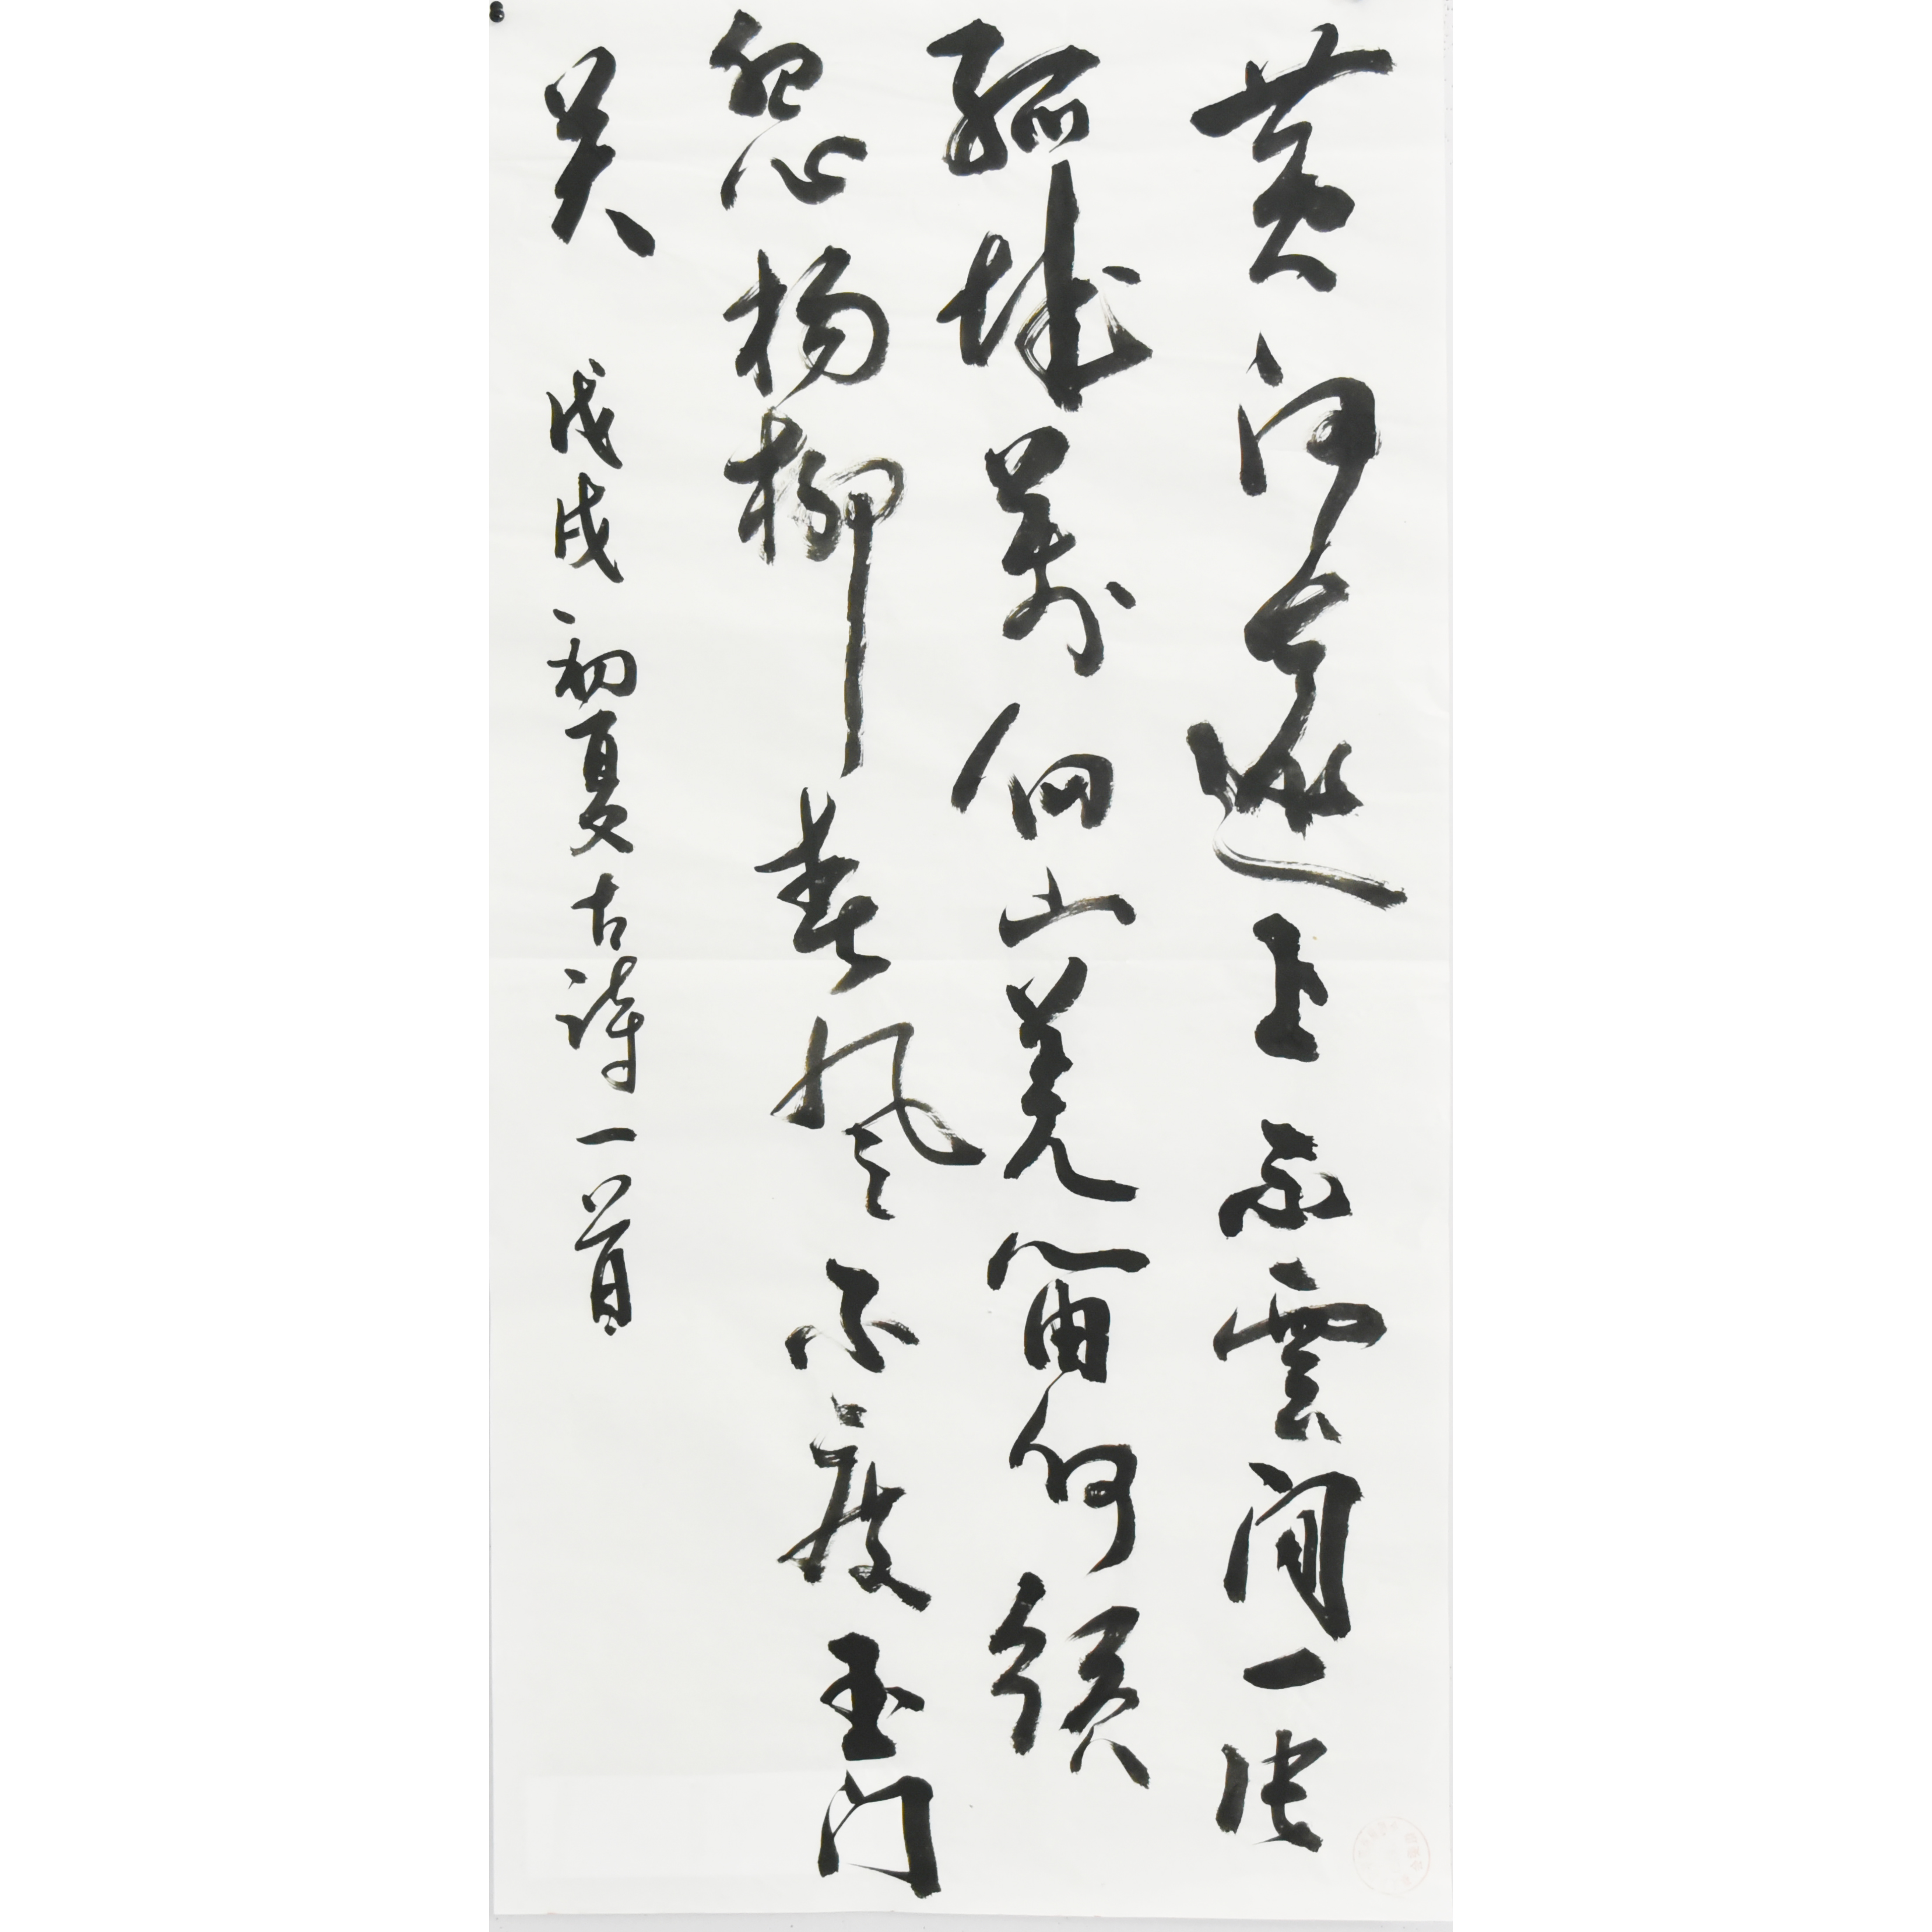 黄河遠上白雲间一片
孤城萬仞山羌笛何須
怨杨柳春風不度玉门
关 戊戌初夏古诗一首